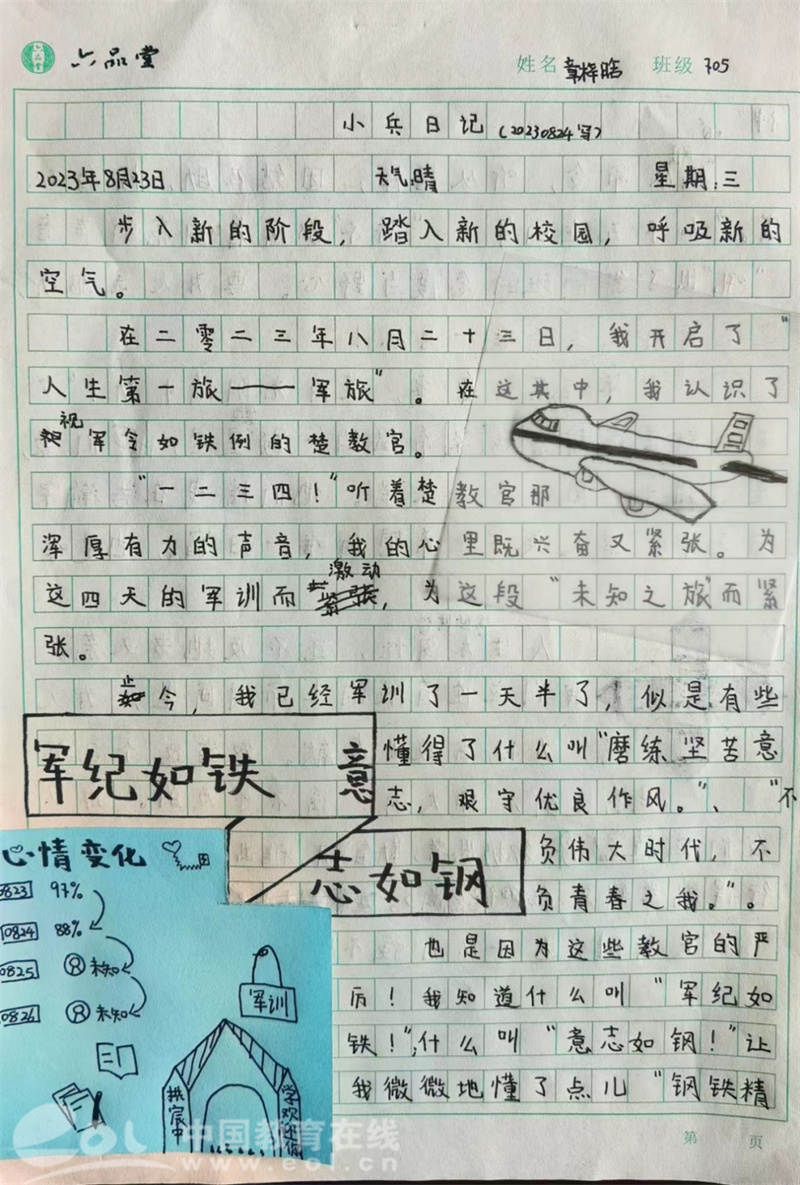 六品堂
姓名 章梓晗 班级 705
小兵日记(20230824写)
2023年8月23日 天气:晴 星期:三
步入新的阶段,踏入新的校园,呼吸新的
空气。
在二零二三年八月二十三日,我开启了“
人生第一旅——军旅”。在这其中,我认识了
视军令如铁例的楚教官。
“一二三四!”听着楚教官那
浑厚有力的声音,我的心里既兴奋又紧张。为
这四天的军训而激动,为这段“未知之旅”而紧
张。
至今,我已经军训了一天半了,似是有些
懂得了什么叫“磨练坚苦意
志,艰守优良作风。”、“不
负伟大时代,不
负青春之我。”。
也是因为这些教官的严
厉!我知道什么叫“军纪如
铁!”,什么叫“意志如钢!”让
我微微地懂了点儿“钢铁精
军纪如铁 意
志如钢
心情变化
0823 97%
0824 88%
0825 未知
0826 未知
军训
拱宸中
学欢迎你
中国教育在线
www.eol.cn
第 页